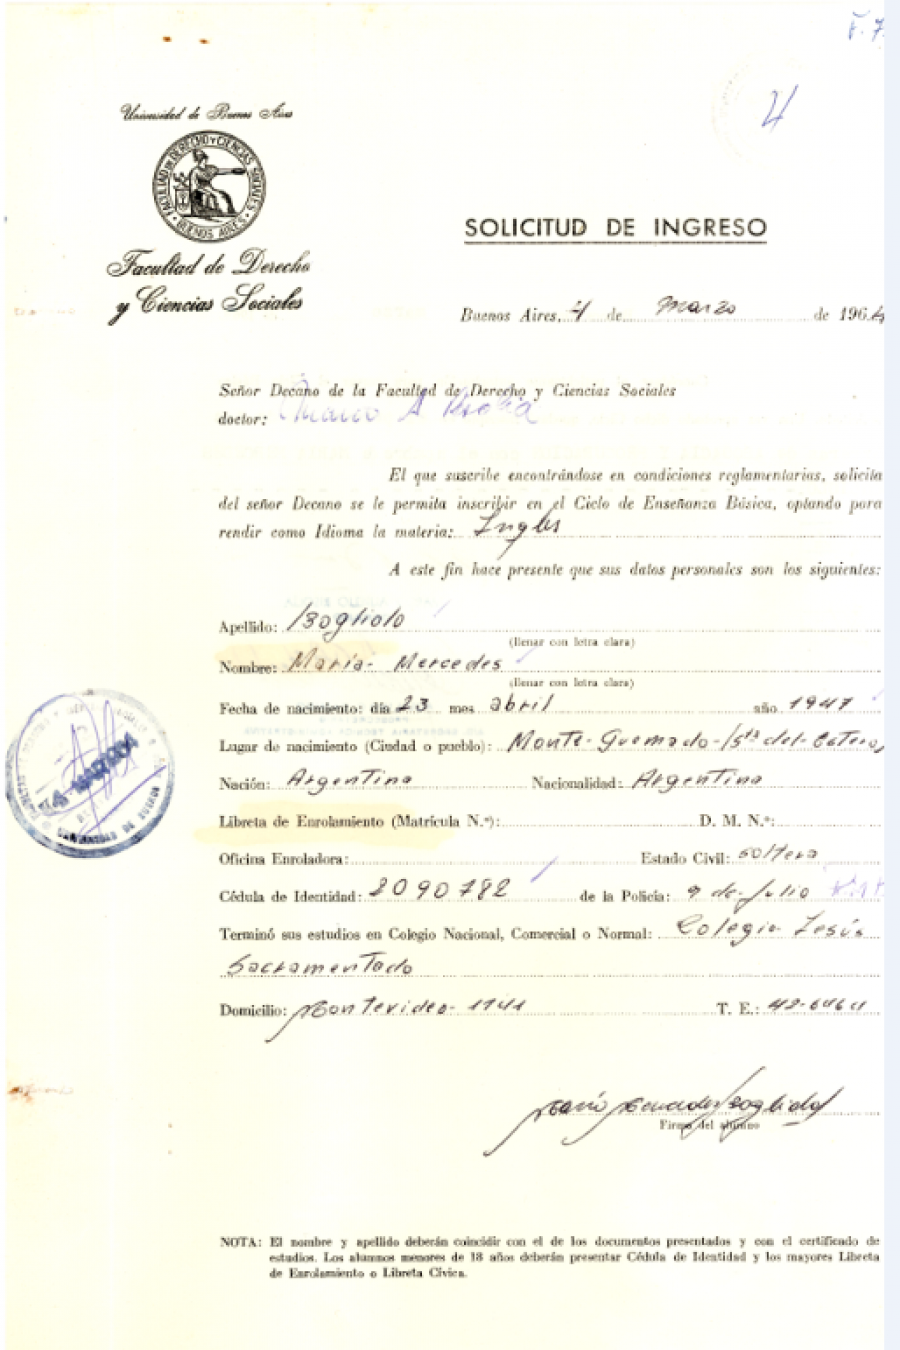 4
Universidad de Buenos Aires
FACULTAD DE DERECHO Y CIENCIAS SOCIALES
BUENOS AIRES
Facultad de Derecho
y Ciencias Sociales
SOLICITUD DE INGRESO
Buenos Aires, 4 de Marzo de 1964
Señor Decano de la Facultad de Derecho y Ciencias Sociales
doctor: A
El que suscribe encontrándose en condiciones reglamentarias, solicita
del señor Decano se le permita inscribir en el Ciclo de Enseñanza Básica, optando para
rendir como Idioma la materia: Ingles
A este fin hace presente que sus datos personales son los siguientes:
Apellido: Bogliolo
(llenar con letra clara)
Nombre: María- Mercedes
(llenar con letra clara)
Fecha de nacimiento: día 23 mes abril año 1947
Lugar de nacimiento (Ciudad o pueblo): Monte-Quemado-
Nación: Argentina Nacionalidad: Argentina
Libreta de Enrolamiento (Matrícula N.º): D. M. N.º:
Oficina Enroladora: Estado Civil: soltera
Cédula de Identidad: 2090782 de la Policía: 9 de-Julio
Terminó sus estudios en Colegio Nacional, Comercial o Normal: Colegio Jesús
Sacramentado
Domicilio: Montevideo- 1141 T. E.: 42-6464
María Mercedes Bogliolo
Firma del alumno
NOTA: El nombre y apellido deberán coincidir con el de los documentos presentados y con el certificado de
estudios. Los alumnos menores de 18 años deberán presentar Cédula de Identidad y los mayores Libreta
de Enrolamiento o Libreta Cívica.